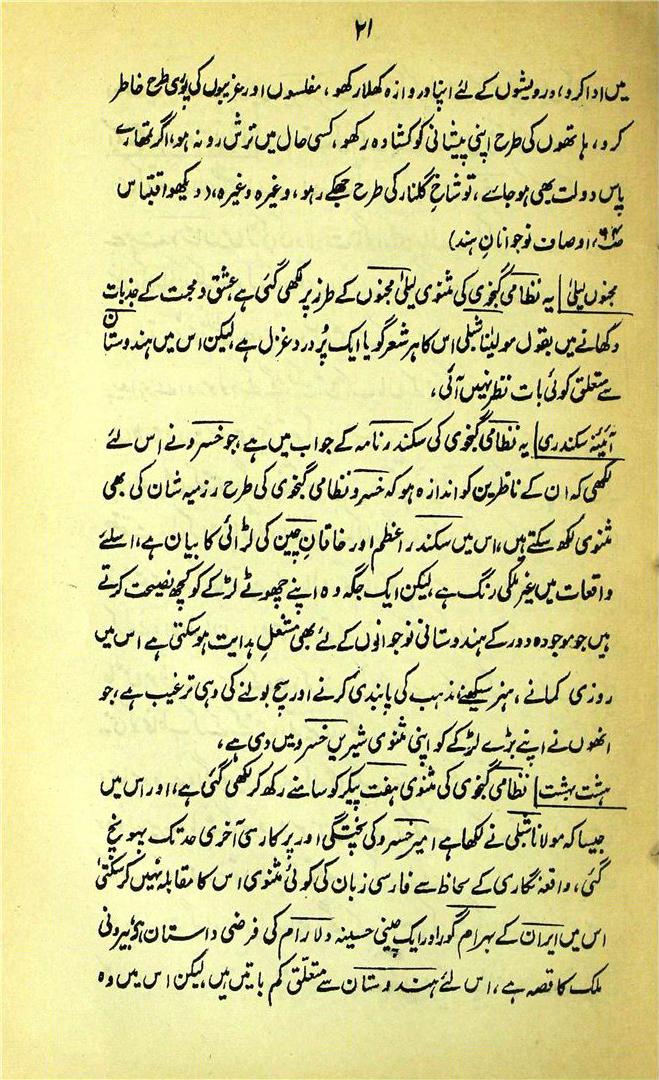 ۲۱
میں ادا کرو، درویشوں کے لئے اپنا دروازہ کھلا رکھو، مفلسوں اور غریبوں کی پوری طرح خاطر
کرو، ہاتھوں کی طرح اپنی پیشانی کو کشادہ رکھو، کسی حال میں ترش رو نہ ہو، اگر تمھارے
پاس دولت بھی ہو جاے، تو شاخِ گلنار کی طرح جھکے رہو، وغیرہ وغیرہ، (دیکھو اقتباس
اوصاف نوجوانانِ ہند)
مجنوں لیلیٰ| یہ نظامی گنجوی کی مثنوی لیلیٰ مجنوں کے طرز پر لکھی گئی ہے عشق و محبت کے جذبات
دکھانے میں بقول مولینا شبلی اس کا ہر شعر گویا ایک پُر درد غزل ہے، لیکن اس میں ہندوستان
سے متعلق کوئی بات نظر نہیں آئی،
آئینۂ سکندری| یہ نظامی گنجوی کی سکندر نامہ کے جواب میں ہے، جو خسرو نے اس لئے
لکھی کہ ان کے ناظرین کو اندازہ ہو کہ خسرو نظامی گنجوی کی طرح رزمیہ شان کی بھی
مثنوی لکھ سکتے ہیں، اس میں سکندر اعظم اور خاقانِ چین کی لڑائی کا بیان ہے، اسلئے
واقعات میں غیر ملکی رنگ ہے، لیکن ایک جگہ وہ اپنے چھوٹے لڑکے کو کچھ نصیحت کرتے
ہیں جو موجودہ دور کے ہندوستانی نوجوانوں کے لئے بھی مشعلِ ہدایت ہو سکتی ہے اس میں
روزی کمانے، ہنر سیکھنے، مذہب کی پابندی کرنے اور سچ بولنے کی وہی ترغیب ہے، جو
انھوں نے اپنے بڑے لڑکے کو اپنی مثنوی شیریں خسرو میں دی ہے،
ہشت بہشت| نظامی گنجوی کی مثنوی ہفت پیکر کو سامنے رکھ کر لکھی گئی ہے، اور اس میں
جیسا کہ مولانا شبلی نے لکھا ہے امیر خسرو کی پختگی اور پرکاری آخری حد تک پہونچ
گئی، واقعہ نگاری کے لحاظ سے فارسی زبان کی کوئی مثنوی اس کا مقابلہ نہیں کر سکتی،
اس میں ایران کے بہرام گور اور ایک چینی حسینہ دلارام کی فرضی داستان ہے، بیرونی
ملک کا قصہ ہے، اس لئے ہندوستان سے متعلق کم باتیں ہیں، لیکن اس میں وہ